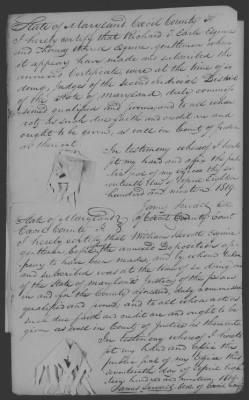 State of Maryland Cecil County
I hereby certify that Richard T. Earle Esquire
and Esquire, gentlemen whom
it appears have made and subscribed the
annexed Certificate, were at the time of so
doing, Judges of the second Judicial District
of the State of Maryland, duly commis-
sioned qualified and sworn, and to all whose
acts as such due faith and credit is and
ought to be given, as well in Court of Justice
as thereout.
In testimony whereof I have
set my hand and affix the pub-
lic seal of my office this seven-
teenth day of April Eighteen
hundred and nineteen 1819.
James Sewell Clk
of Cecil County Court
State of Maryland
Cecil County
I hereby certify that William
gentleman, before whom the annexed Depositions ap-
pear to have been made, and by whom taken
and subscribed was at the time of so doing one
of the State of Maryland's Justices of the peace
in and for the County aforesaid, duly commissioned
qualified and sworn, and to all whose acts as
such due faith and credit are and ought to be
given as well in Court of Justice as thereout
In testimony whereof I have
set my hand and affix the
public seal of my office this
seventeenth day of April Eigh-
teen hundred and nineteen, 1819.
James Sewell Clk of Cecil County